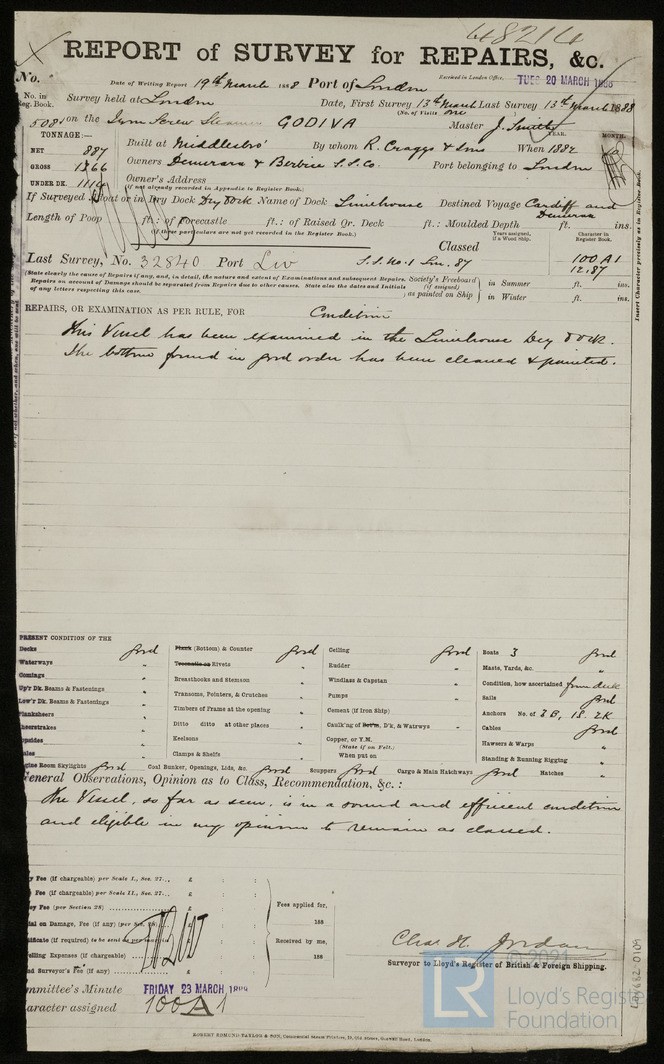 48214
REPORT of SURVEY for REPAIRS, &c.
No.
Date of Writing Report 19th March 1888 Port of London
Received in London Office. TUES 20 MARCH 1888
No. in Reg. Book.
Survey held at London Date, First Survey 13th March Last Survey 13th March 1888
(No. of Visits one)
508 on the Iron Screw Steamer GODIVA Master J. Smith
TONNAGE:—
YEAR. MONTH.
NET 887
Built at Middlesbro' By whom R. Craggs & Sons When 1882
GROSS 1366
Owners Demerara & Berbice S.S. Co. Port belonging to London
UNDER DK. 1119
Owner's Address
(If not already recorded in Appendix to Register Book.)
If Surveyed Afloat or in Dry Dock Dry Dock Name of Dock Limehouse Destined Voyage Cardiff and Demerara
Length of Poop ft.: of Forecastle ft.: of Raised Qr. Deck ft.: Moulded Depth ft. ins.
(If these particulars are not yet recorded in the Register Book.)
Years assigned, if a Wood Ship.
Character in Register Book.
Classed
Last Survey, No. 32840 Port Liv S.S. No. 1 Lon. 87 100 A1
12.87
(State clearly the cause of Repairs if any, and, in detail, the nature and extent of Examinations and subsequent Repairs.
Repairs on account of Damage should be separated from Repairs due to other causes. State also the dates and Initials
of any letters respecting this case.
Society's Freeboard (if assigned) as painted on Ship
in Summer ft. ins.
in Winter ft. ins.
Insert Character precisely as in Register Book.
REPAIRS, OR EXAMINATION AS PER RULE, FOR Condition
This Vessel has been examined in the Limehouse Dry Dock.
The bottom found in good order has been cleaned & painted.
PRESENT CONDITION OF THE
Decks good
Waterways "
Comings "
Up'r Dk. Beams & Fastenings "
Low'r Dk. Beams & Fastenings "
Planksheers "
Sheerstrakes "
Topsides "
Wales "
Engine Room Skylights good
Plank (Bottom) & Counter good
Treenails or Rivets "
Breasthooks and Stemson "
Transoms, Pointers, & Crutches "
Timbers of Frame at the opening "
Ditto ditto at other places "
Keelsons "
Clamps & Shelfs "
Coal Bunker, Openings, Lids, &c. good
Ceiling good
Rudder "
Windlass & Capstan "
Pumps "
Cement (if Iron Ship) "
Caulk'g of Bot'm, D'k, & Watrwys "
Copper, or Y.M.
(State if on Felt.)
When put on
Scuppers good
Cargo & Main Hatchways good
Boats 3 good
Masts, Yards, &c. "
Condition, how ascertained from deck
Sails good
Anchors No. of 3B, 1S. 2K
Cables good
Hawsers & Warps "
Standing & Running Rigging "
Hatches "
General Observations, Opinion as to Class, Recommendation, &c.:
The Vessel, so far as seen, is in a sound and efficient condition
and eligible in my opinion to remain as classed.
Fee (if chargeable) per Scale I., Sec. 27... £ : :
Fee (if chargeable) per Scale II., Sec. 27... £ : :
Fee (per Section 28) £ : :
on Damage, Fee (if any) (per Sec. 28) £ : :
Certificate (if required) to be sent as per margin
Travelling Expenses (if chargeable) £ : :
Surveyor's Fee (if any) £ : :
Fees applied for, 188
Received by me, 188
Chas. H. Jordan
Surveyor to Lloyd's Register of British & Foreign Shipping.
Committee's Minute FRIDAY 23 MARCH 1888
Character assigned 100 A 1
© 2021
LR
Lloyd's Register
Foundation
ROBERT EDMUND TAYLOR & SON, Commercial Steam Printers, 19, Old Street, Goswell Road, London.